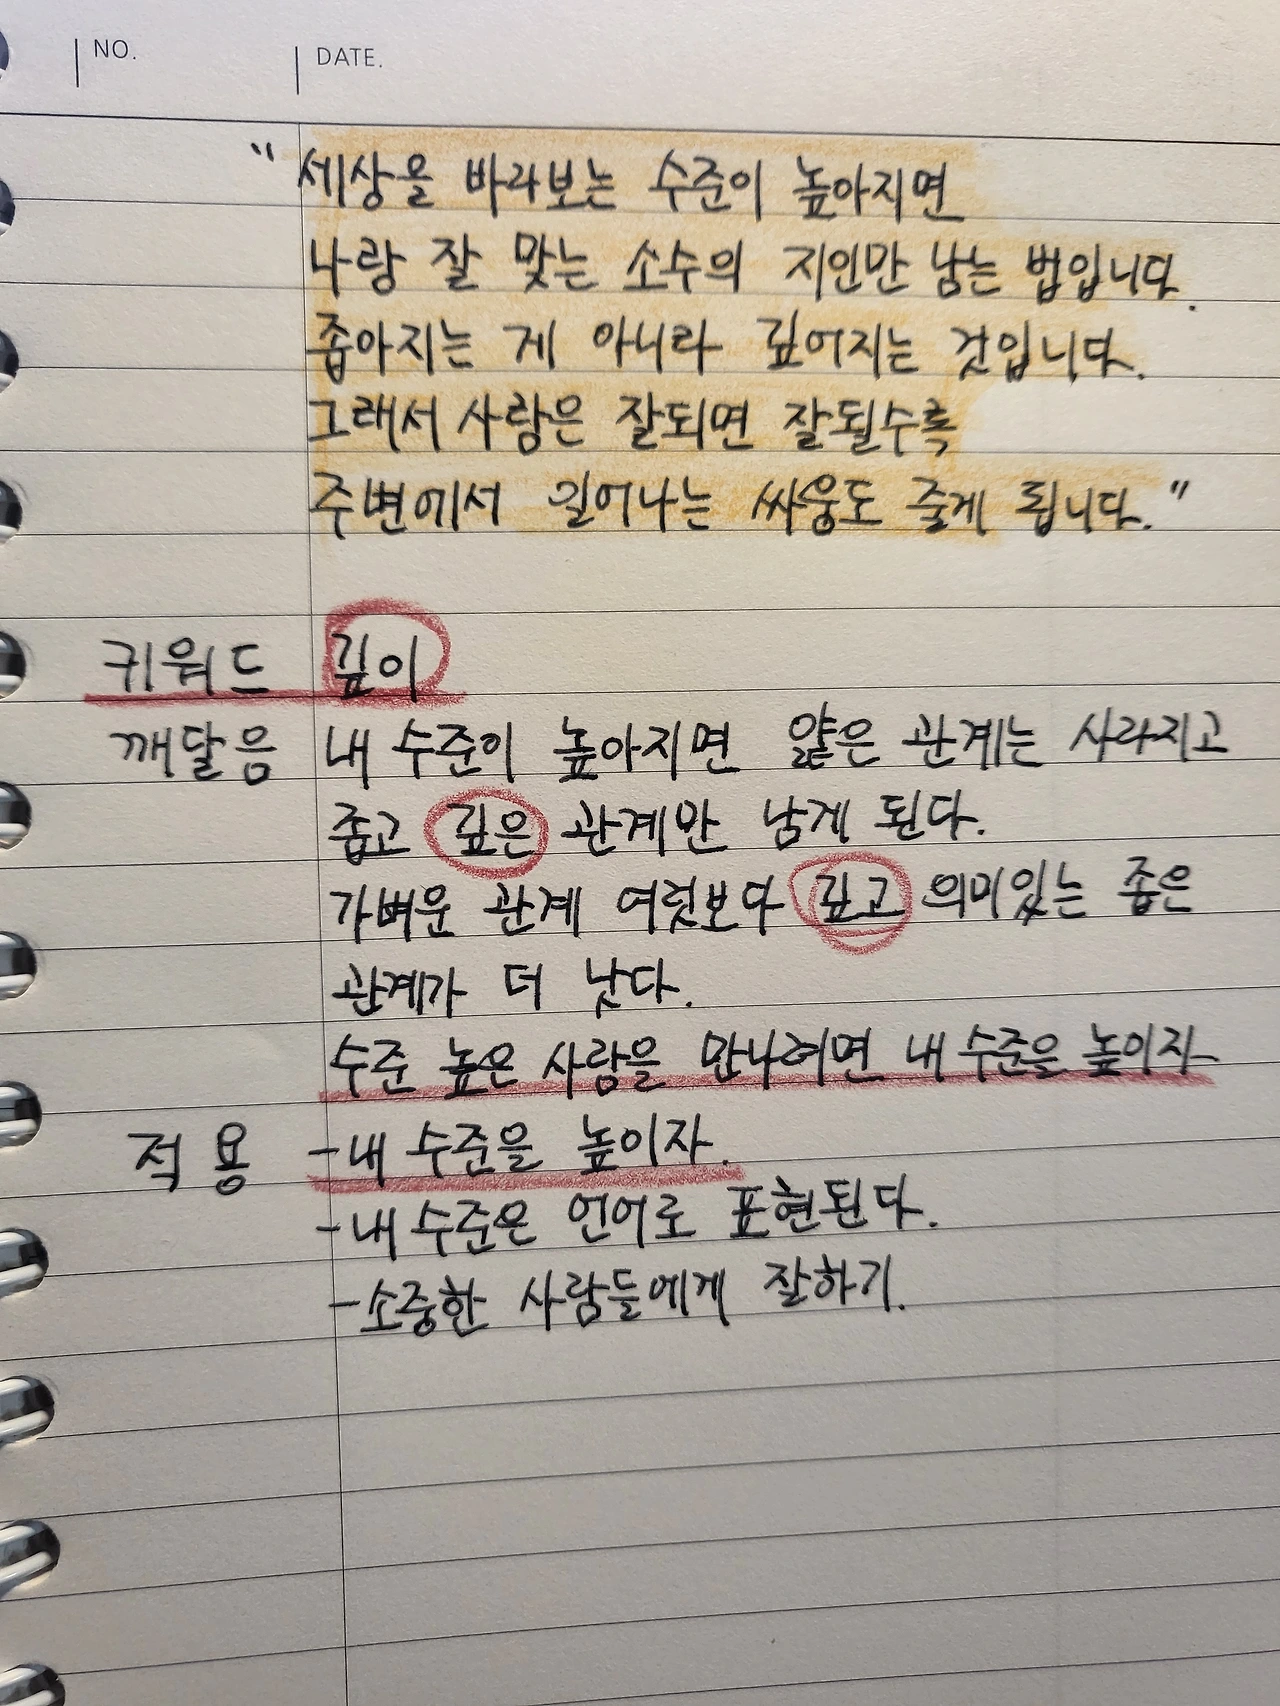 NO. DATE.
"세상을 바라보는 수준이 높아지면
나랑 잘 맞는 소수의 지인만 남는 법입니다.
좁아지는 게 아니라 깊어지는 것입니다.
그래서 사람은 잘되면 잘될수록
주변에서 일어나는 싸움도 줄게 됩니다."
키워드 깊이
깨달음 내 수준이 높아지면 얕은 관계는 사라지고
좁고 깊은 관계만 남게 된다.
가벼운 관계 여럿보다 깊고 의미있는 좁은
관계가 더 낫다.
수준 높은 사람을 만나려면 내 수준을 높이자
적용 -내 수준을 높이자.
-내 수준은 언어로 표현된다.
-소중한 사람들에게 잘하기.